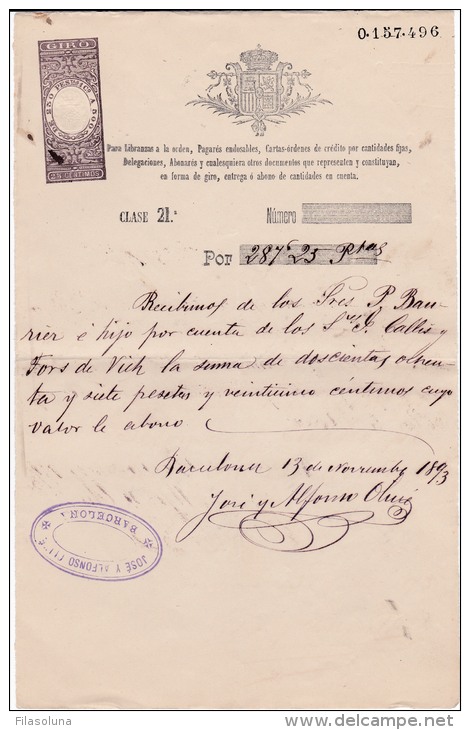 0.157.496
GIRO
DE 250 PESETAS A 500
25 CENTIMOS
Para Libranzas a la orden, Pagarés endosables, Cartas-órdenes de crédito por cantidades fijas,
Delegaciones, Abonarés y cualesquiera otros documentos que representen y constituyan,
en forma de giro, entrega ó abono de cantidades en cuenta.
CLASE 21.ª Número
Por 287'25 Ptas
Recibimos de los Sres P. Bau-
rier é hijo por cuenta de los Sres P. Calbis y
Fors de Vich la suma de doscientas ochen-
ta y siete pesetas y veinticinco centimos cuyo
valor le abono
Barcelona 13 de Noviembre 1893
José y Alfonso
JOSÉ Y ALFONSO
BARCELONA
Filasoluna
delcampe.net